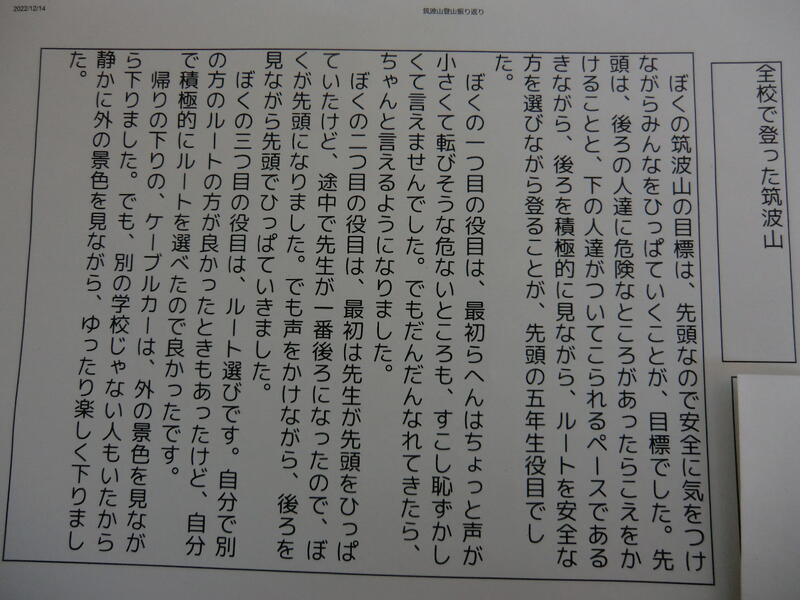 2022/12/14
筑波山登山振り返り
全校で登った筑波山
ぼくの筑波山の目標は、先頭なので安全に気をつけ
ながらみんなをひっぱていくことが、目標でした。先
頭は、後ろの人達に危険なところがあったらこえをか
けることと、下の人達がついてこられるペースである
きながら、後ろを積極的に見ながら、ルートを安全な
方を選びながら登ることが、先頭の五年生役目でし
た。
ぼくの一つ目の役目は、最初らへんはちょっと声が
小さくて転びそうな危ないところも、すこし恥ずかし
くて言えませんでした。でもだんだんなれてきたら、
ちゃんと言えるようになりました。
ぼくの二つ目の役目は、最初は先生が先頭をひっぱ
ていたけど、途中で先生が一番後ろになったので、ぼ
くが先頭になりました。でも声をかけながら、後ろを
見ながら先頭でひっぱていきました。
ぼくの三つ目の役目は、ルート選びです。自分で別
の方のルートの方が良かったときもあったけど、自分
で積極的にルートを選べたので良かったです。
帰りの下りの、ケーブルカーは、外の景色を見なが
ら下りました。でも、別の学校じゃない人もいたから
静かに外の景色を見ながら、ゆったり楽しく下りまし
た。